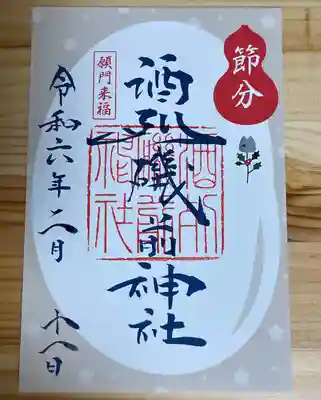 節分
笑門来福
酒列磯前神社
酒列磯前神社
令和六年二月十八日